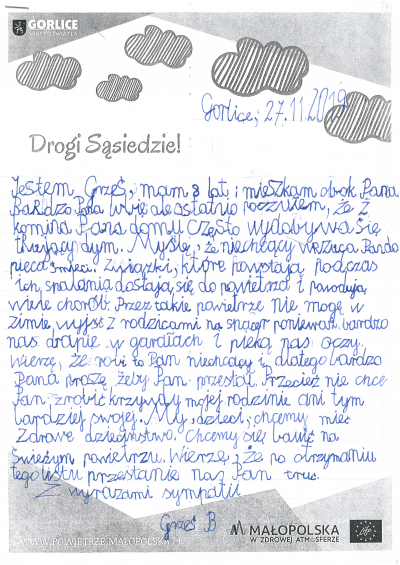 GORLICE
MIASTO ŚWIATŁA
Gorlice, 27.11.2019
Drogi Sąsiedzie!
Jestem Grześ, mam 8 lat, i mieszkam obok Pana
Bardzo Pana lubię ale ostatnio poczułem, że z
komina Pana domu często wydobywa się
trujący dym. Myślę, że niechcący wrzuca Pan do
pieca śmieci. Związki, które powstają podczas
ich spalania dostają się do powietrza i powodują
wiele chorób. Przez takie powietrze nie mogę w
zimie wyjść z rodzicami na spacer ponieważ bardzo
nas drapie w gardłach i pieką nas oczy.
Wierzę, że robi to Pan niechcący i dlatego bardzo
Pana proszę żeby Pan przestał. Przecież nie chce
Pan zrobić krzywdy mojej rodzinie ani tym
bardziej swojej. My, dzieci, chcemy mieć
zdrowe dzieciństwo. Chcemy się bawić na
świeżym powietrzu. Wierzę, że po otrzymaniu
tego listu przestanie nas Pan truć.
Z wyrazami sympatii
Grześ B
WWW.POWIETRZE.MALOPOLSKA.PL
MAŁOPOLSKA
W ZDROWEJ ATMOSFERZE